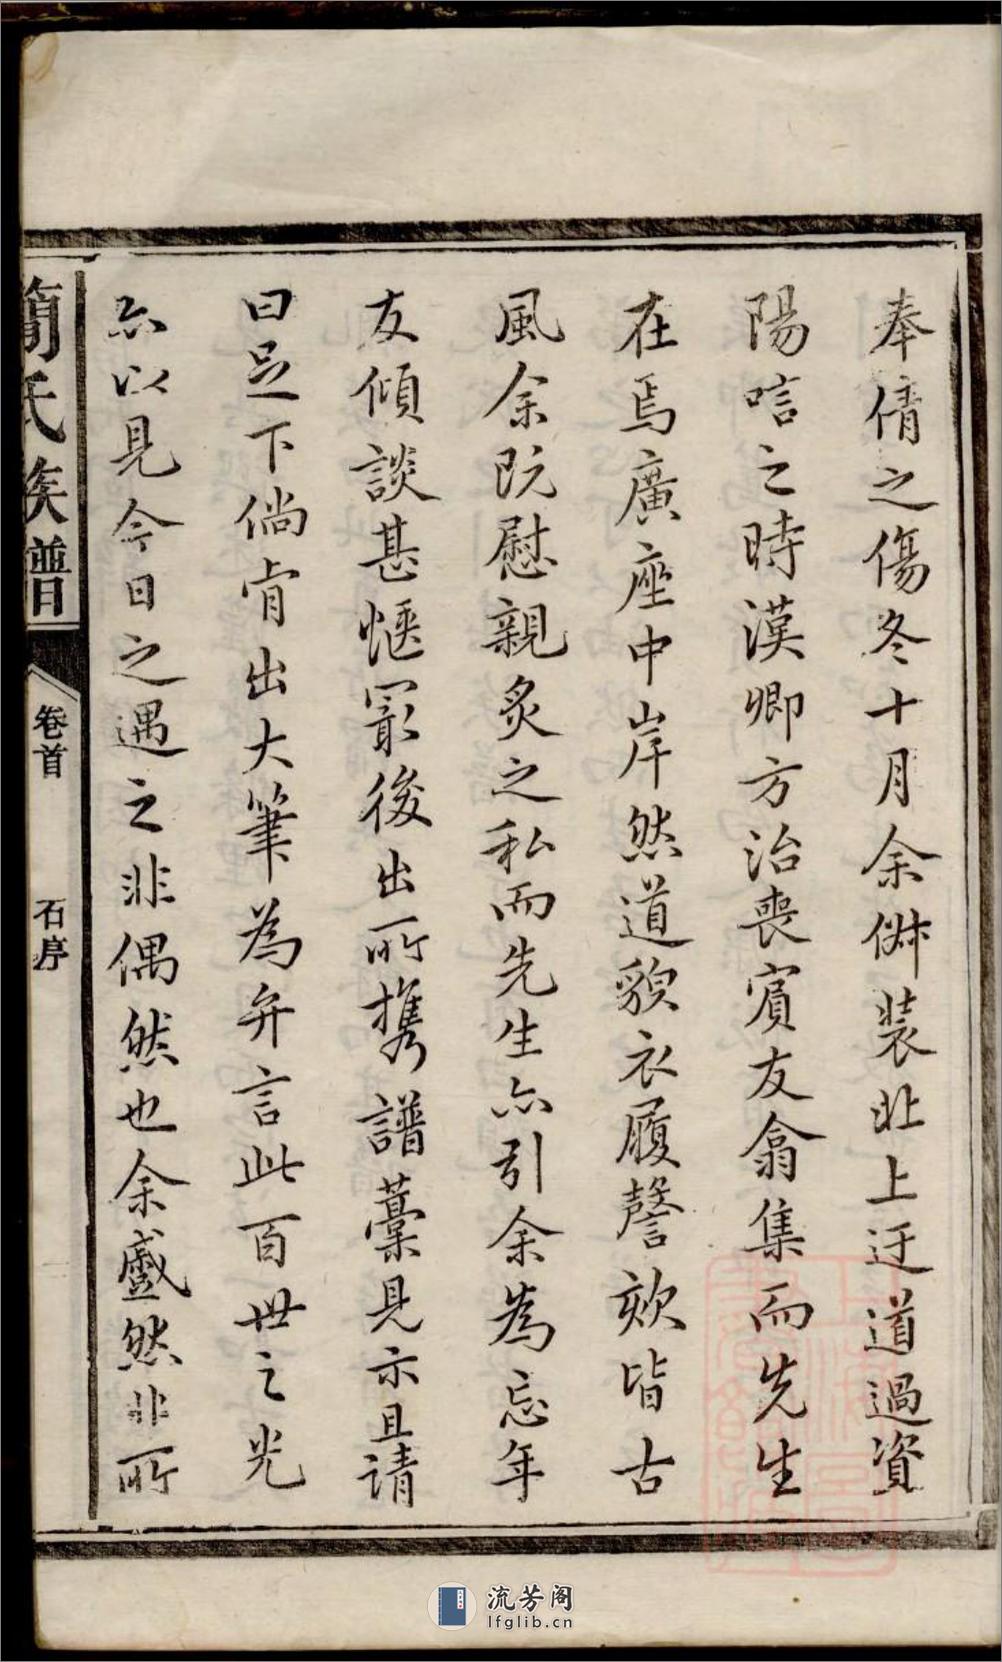 奉倩之傷冬十月余俶装北上迂道過資
陽唁之時漢卿方治喪賓友翕集而先生
在焉廣座中岸然道貌衣履謦欬皆古
風余既慰親炙之私而先生亦引余為忘年
友傾談甚愜最後出所携譜藁見示且請
曰足下倘肯出大筆為弁言此百世之光
亦以見今日之遇之非偶然也余蹙然非所
簡氏族譜
卷首
石序
流芳阁
lfglib.cn